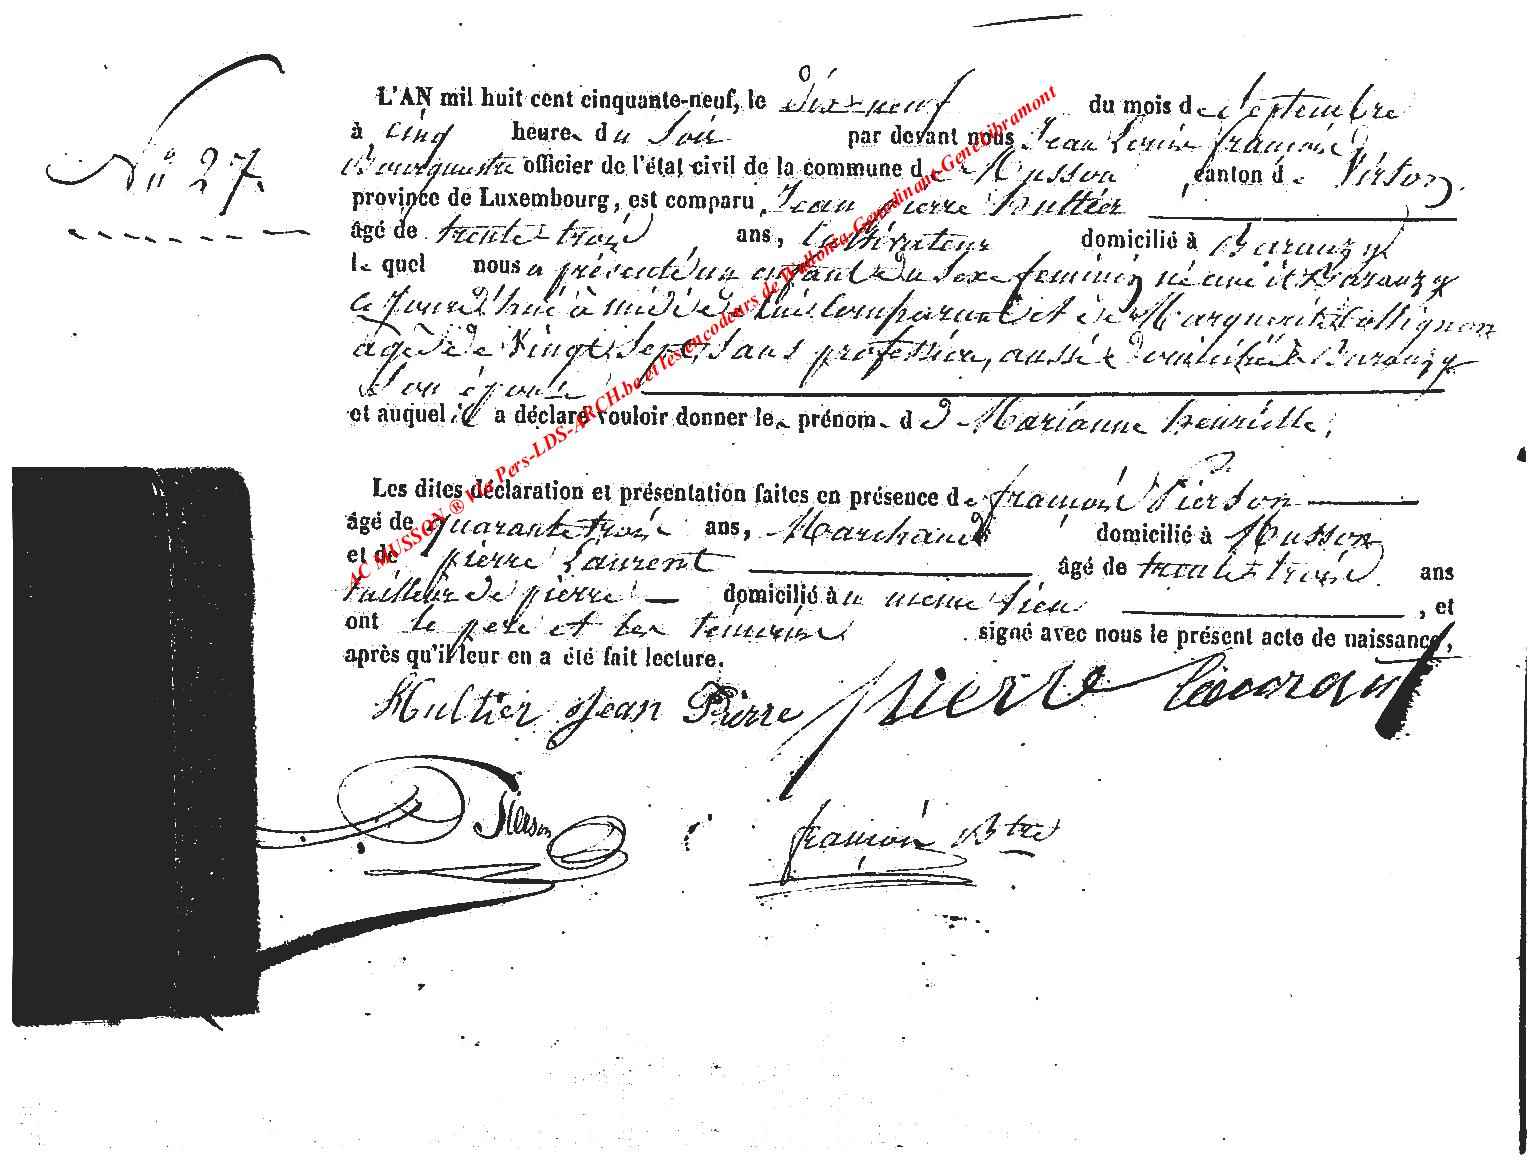 N° 27.
L'AN mil huit cent cinquante-neuf, le Dix-neuf du mois de Septembre
à cinq heures du Soir par devant nous Jean Louis françois
Bourguestre officier de l'état civil de la commune de Musson, canton de Virton.
province de Luxembourg, est comparu, Jean pierre hultier
âgé de trente-trois ans, Cultivateur domicilié à Baranzy
le quel nous a présenté un enfant du Sexe feminin né cive it Baranzy
ce Jourd'hui à midi de lui Comparant et de Marguerite Collignon
agée de Vingt Sept, Sans profession, aussi domiciliée à Baranzy
Son épouse
et auquel il a déclaré vouloir donner les prénoms de Marianne henriette.
Les dites déclaration et présentation faites en présence de françois Pierson
âgé de quarante trois ans, Marchand domicilié à Musson
et de pierre Laurent âgé de trente-trois ans
tailleur de pierre domicilié au meme lieu , et
ont le pere et les témoins signé avec nous le présent acte de naissance,
après qu'il leur en a été fait lecture.
Hultier Jean Pierre pierre laurant
Pierson françois Btre
AC MUSSON ® Via Pers-LDS-ARCH.be et les encodeurs de Wallonia-Genedinant-Genelibramont